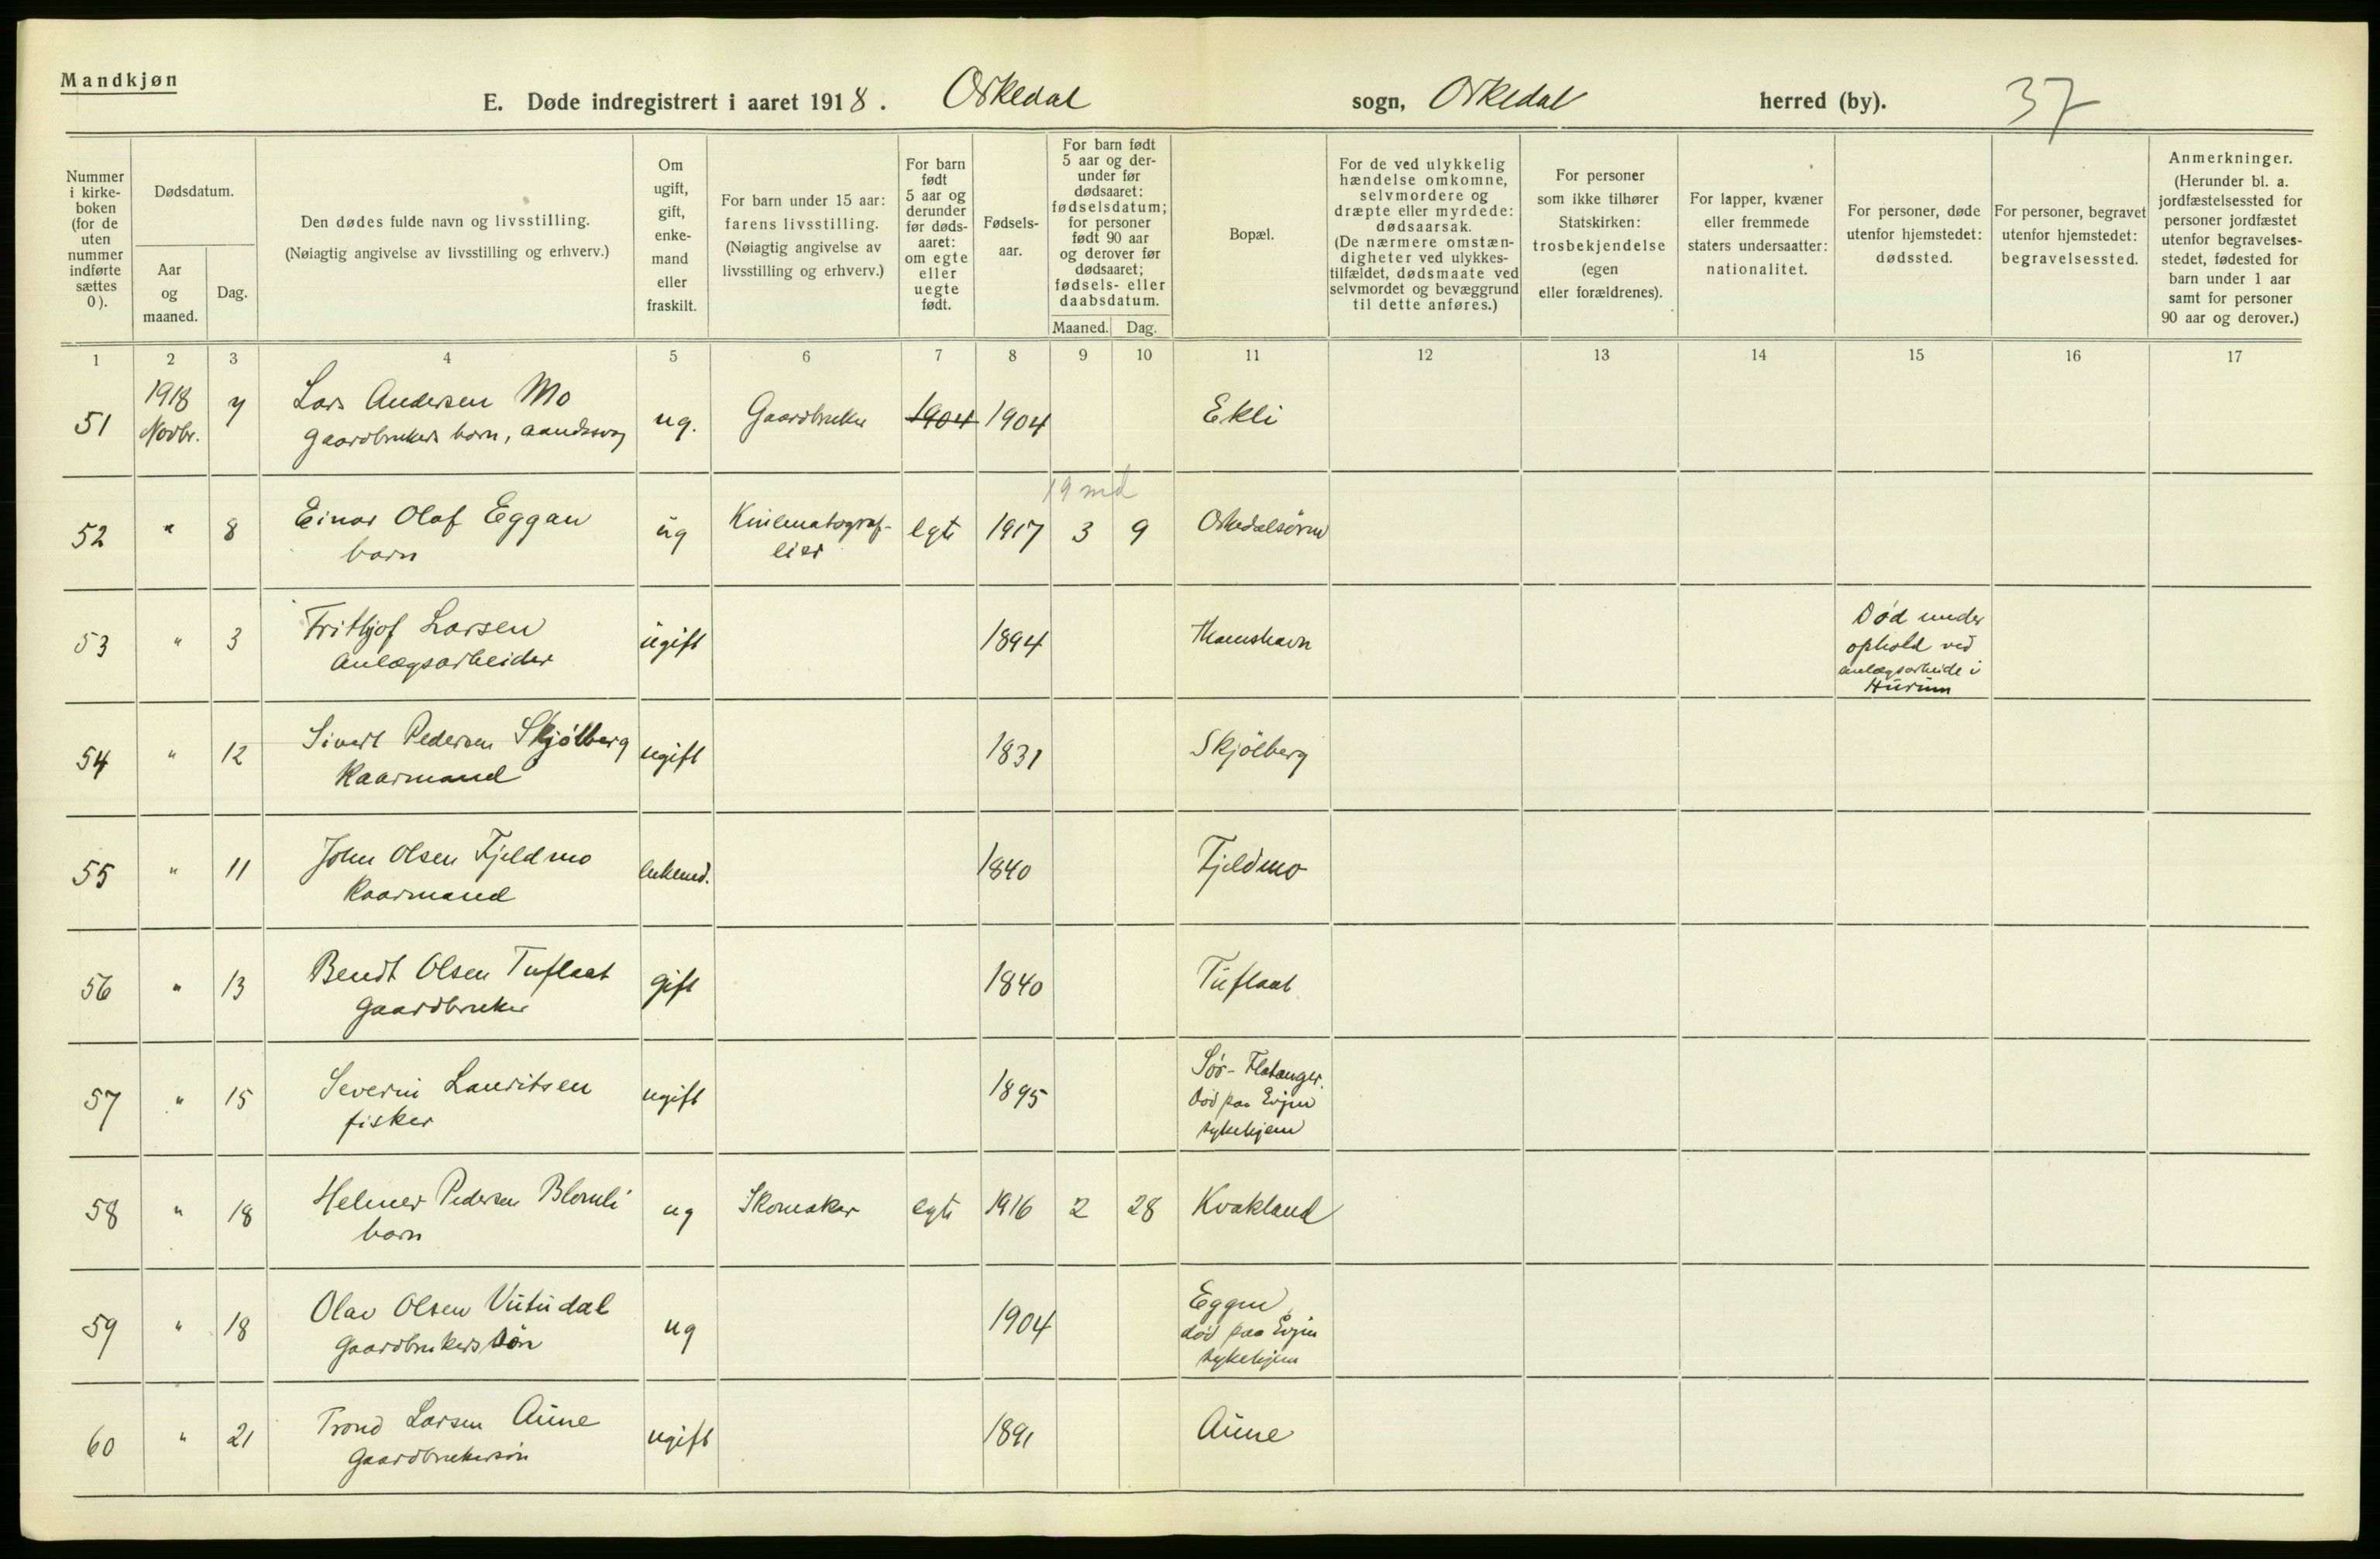 Mandkjøn
E. Døde indregistrert i aaret 1918. Orkedal sogn, Orkedal herred (by). 37
Nummer
i kirke-
boken
(for de
uten
nummer
indførte
sættes
0).
Dødsdatum.
Aar
og
maaned.
Dag.
Den dødes fulde navn og livsstilling.
(Nøiagtig angivelse av livsstilling og erhverv.)
Om
ugift,
gift,
enke-
mand
eller
fraskilt.
For barn under 15 aar:
farens livsstilling.
(Nøiagtig angivelse av
livsstilling og erhverv.)
For barn
født
5 aar og
derunder
før døds-
aaret:
om egte
eller
uegte
født.
Fødsels-
aar.
For barn født
5 aar og der-
under før
dødsaaret:
fødselsdatum;
for personer
født 90 aar
og derover før
dødsaaret;
fødsels- eller
daabsdatum.
Maaned. Dag.
Bopæl.
For de ved ulykkelig
hændelse omkomne,
selvmordere og
dræpte eller myrdede:
dødsaarsak.
(De nærmere omstæn-
digheter ved ulykkes-
tilfældet, dødsmaate ved
selvmordet og bevæggrund
til dette anføres.)
For personer
som ikke tilhører
Statskirken:
trosbekjendelse
(egen
eller forældrenes).
For lapper, kvæner
eller fremmede
staters undersaatter:
nationalitet.
For personer, døde
utenfor hjemstedet:
dødssted.
For personer, begravet
utenfor hjemstedet:
begravelsessted.
Anmerkninger.
(Herunder bl. a.
jordfæstelsessted for
personer jordfæstet
utenfor begravelses-
stedet, fødested for
barn under 1 aar
samt for personer
90 aar og derover.)
1 2 3 4 5 6 7 8 9 10 11 12 13 14 15 16 17
51 1918 Novbr. 7 Lars Andersen Mo ug. Gaardbruker 1904 1904 Ekli
Gaardbrukers barn, aandssvag
19 md
52 " 8 Einar Olaf Eggan ug Kinematograf- egte 1917 3 9 Orkedalsøren
barn eier
53 " 3 Frithjof Larsen ugift 1894 Thamshavn
Anlægsarbeider
Død under
ophold ved
anlægsarbeide i
Hurum
54 " 12 Sivert Pedersen Skjølberg ugift 1831 Skjølberg
Kaarmand
55 " 11 John Olsen Fjeldmo enkemd. 1840 Fjeldmo
Kaarmand
56 " 13 Bendt Olsen Tuflaat gift 1840 Tuflaat
Gaardbruker
57 " 15 Severin Lauritsen ugift 1895 Sør-Flatanger.
fisker Død paa Evjen
sykehjem
58 " 18 Helmer Pedersen Blomli ug Skomaker egte 1916 2 28 Kvakland
barn
59 " 18 Olav Olsen Vutudal ug 1904 Eggen
Gaardbrukers søn død paa Evjen
sykehjem
60 " 21 Trond Larsen Aune ugift 1891 Aune
Gaardbrukersøn